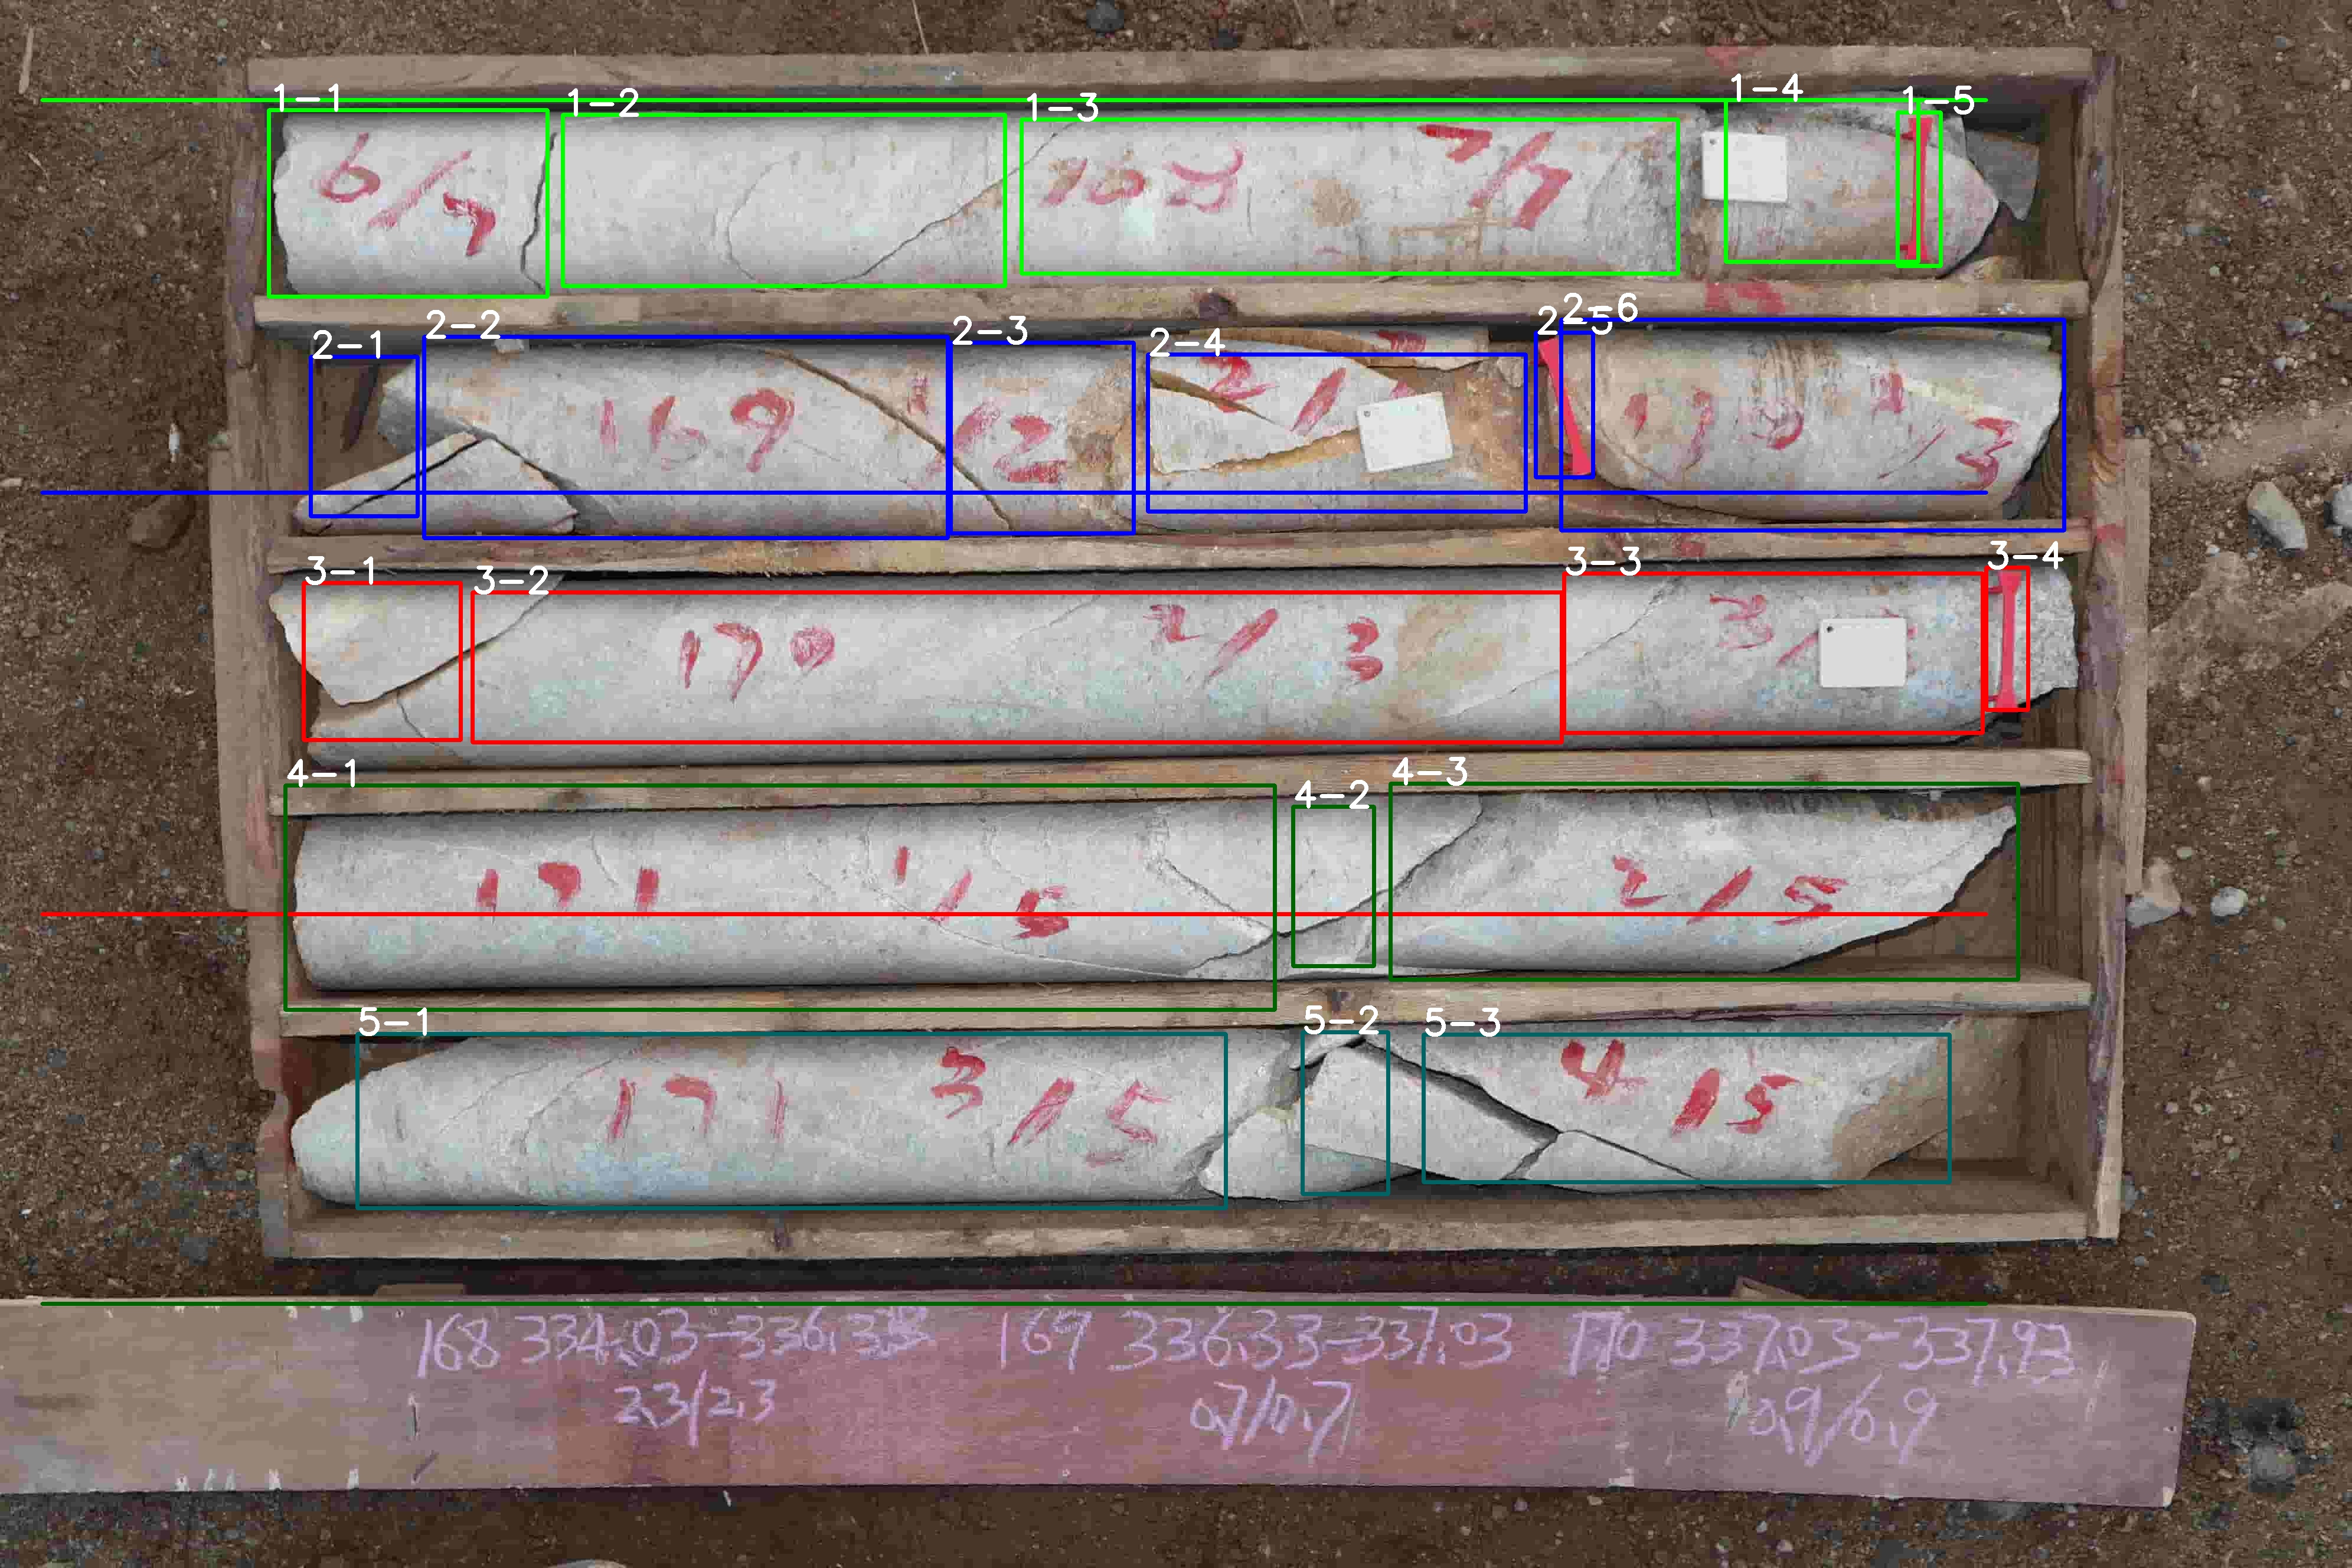 1-1 1-2 1-3 1-4 1-5
6/7 168 7/7
2-1 2-2 2-3 2-4 2-5 2-6
169 1/2 2/ 170 1/3
3-1 3-2 3-3 3-4
170 2/3 3/
4-1 4-2 4-3
171 1/5 2/5
5-1 5-2 5-3
171 3/5 4/5
168 334.03-336.33 169 336.33-337.03 170 337.03-337.93
2.3/2.3 0.7/0.7 0.9/0.9